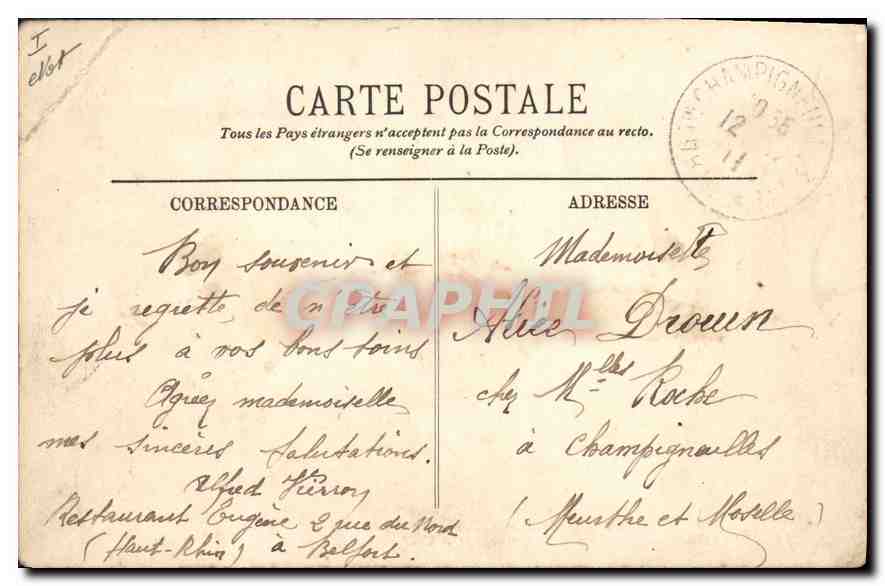 I
CARTE POSTALE
Tous les Pays étrangers n'acceptent pas la Correspondance au recto.
(Se renseigner à la Poste).
CHAMPIGNEULLES
12
11
CORRESPONDANCE
Bon souvenir et
je regrette de n'être
plus à vos bons soins
Agréez mademoiselle
mes sincères salutations.
Alfred Pierron
Restaurant Eugène 2 rue du Nord
(Haut-Rhin) à Belfort.
ADRESSE
Mademoiselle
Alice Drouin
chez Mlles Roche
à Champigneulles
(Meurthe et Moselle)
CPAPHIL